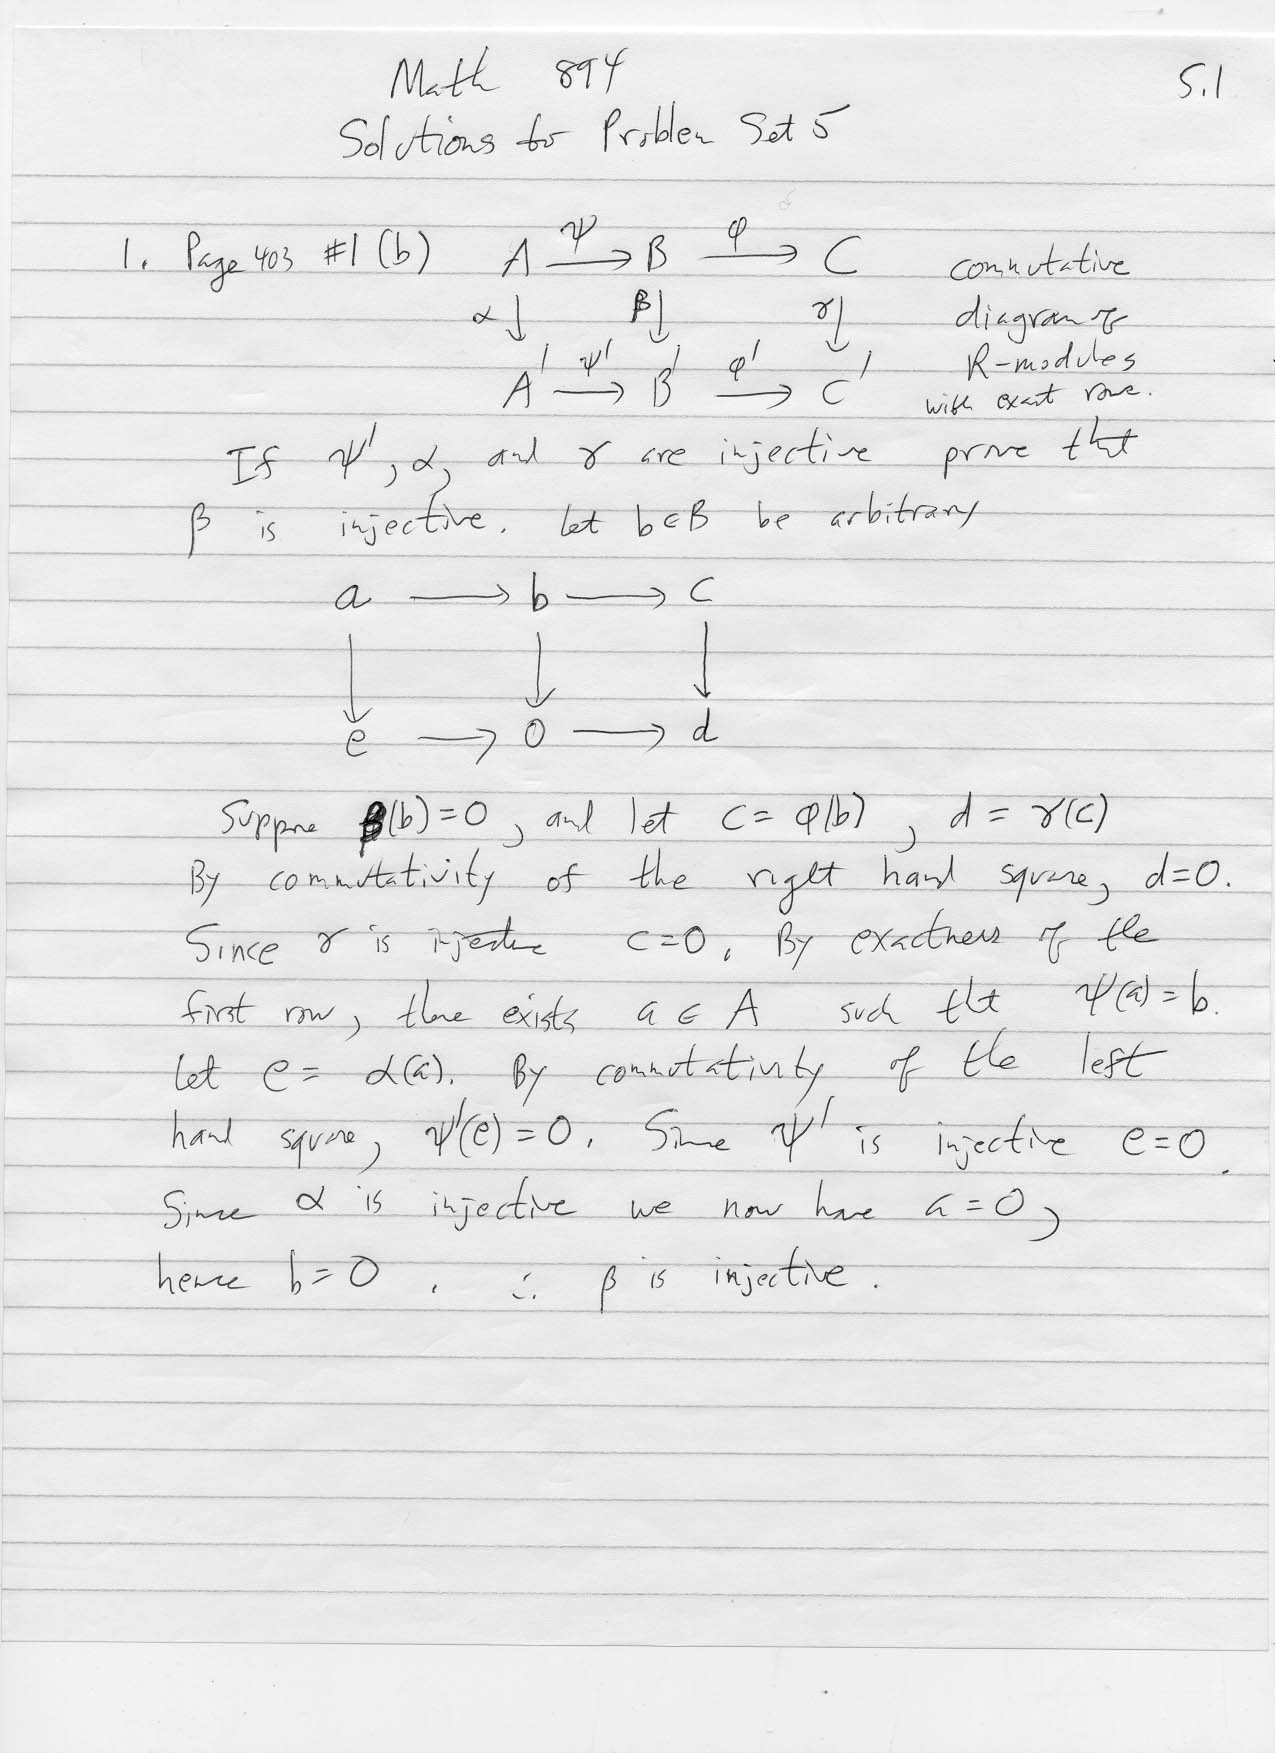 Math 894
5.1
Solutions to Problem Set 5
1. Page 403 #1 (b) A ψ→ B φ→ C commutative
α↓ β↓ γ↓ diagram of
A' ψ'→ B' φ'→ C' R-modules
with exact rows.
If ψ', α, and γ are injective prove that
β is injective. Let b∈B be arbitrary
a → b → c
↓ ↓ ↓
e → 0 → d
Suppose β(b)=0, and let c = φ(b), d = γ(c)
By commutativity of the right hand square, d=0.
Since γ is injective c=0. By exactness of the
first row, there exists a ∈ A such that ψ(a) = b.
Let e = α(a). By commutativity of the left
hand square, ψ'(e) = 0. Since ψ' is injective e=0.
Since α is injective we now have a = 0,
hence b = 0. ∴ β is injective.